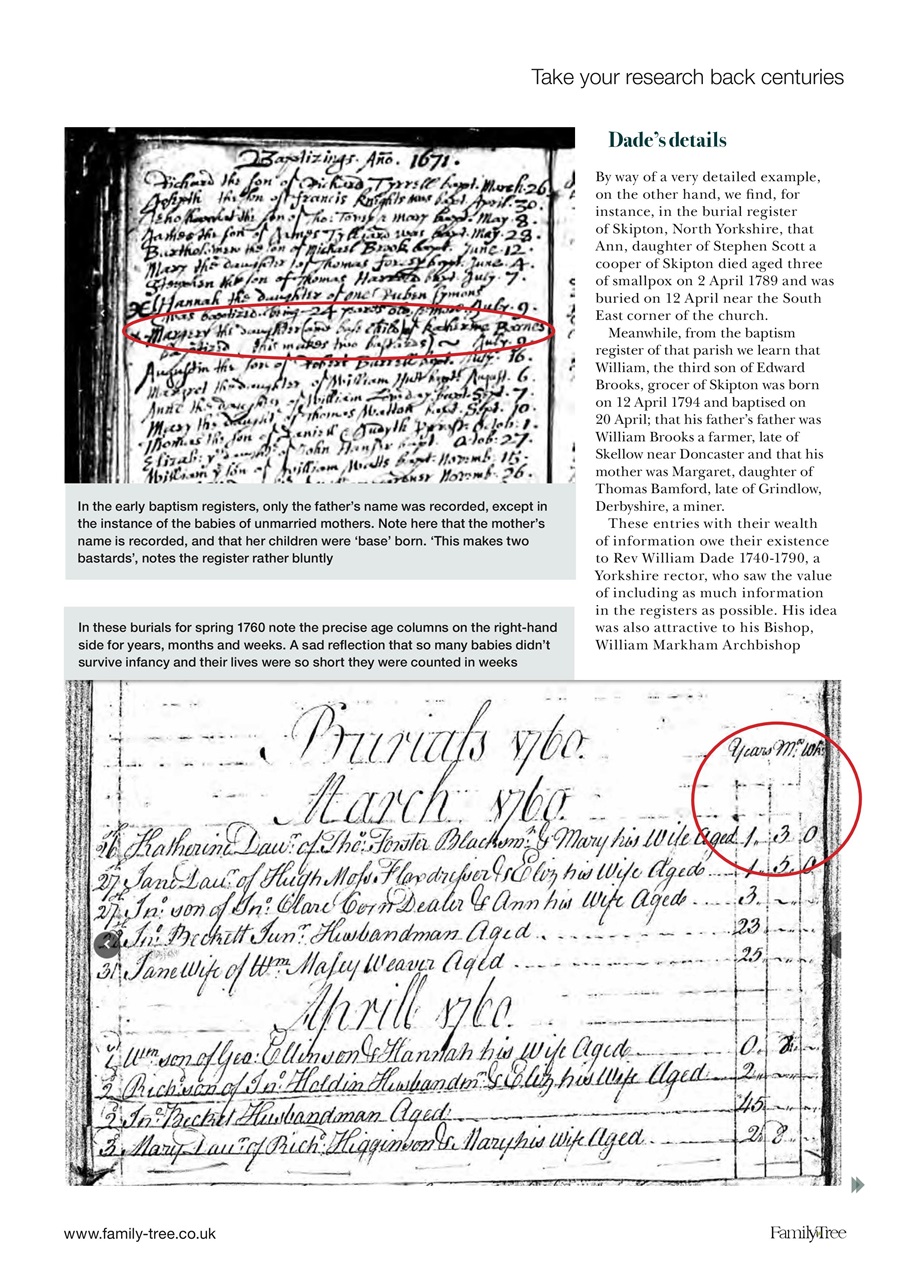 Take your research back centuries
Baptizings. Año. 1671.
Richard the son of Richard Tyrrell bapt. March. 26
Joseph the son of Francis Knights was bapt. April. 30.
the son of Tho: & mary bapt. May. 8.
James the son of James Tylliard was bapt. May. 28.
Bartholomew the son of Michael Brook bapt. June. 12
Mary the daughter of Thomas bapt. June. 4.
Stephen the son of Thomas bapt. July. 7.
Hannah the daughter of one Ruben Symons
was baptized being 24 years old & more July. 9.
Margery the daughter (and base child) of Katherine Barnes
baptized this makes two bastards) ~ July. 9.
Augustin the son of Robert Burrell bapt. July. 16.
Margret the daughter of William bapt. August. 6.
Anne the daughter of William bapt. Sept. 7.
Mary the daughter of Thomas bapt. Sept. 10.
Thomas the son of Octob: 1.
Elizab: daughter of John bapt. Octob: 27.
William son of William Watts bapt. Novemb. 15.
Novemb. 26.
In the early baptism registers, only the father’s name was recorded, except in
the instance of the babies of unmarried mothers. Note here that the mother’s
name is recorded, and that her children were ‘base’ born. ‘This makes two
bastards’, notes the register rather bluntly
In these burials for spring 1760 note the precise age columns on the right-hand
side for years, months and weeks. A sad reflection that so many babies didn’t
survive infancy and their lives were so short they were counted in weeks
Dade’s details
By way of a very detailed example,
on the other hand, we find, for
instance, in the burial register
of Skipton, North Yorkshire, that
Ann, daughter of Stephen Scott a
cooper of Skipton died aged three
of smallpox on 2 April 1789 and was
buried on 12 April near the South
East corner of the church.
Meanwhile, from the baptism
register of that parish we learn that
William, the third son of Edward
Brooks, grocer of Skipton was born
on 12 April 1794 and baptised on
20 April; that his father’s father was
William Brooks a farmer, late of
Skellow near Doncaster and that his
mother was Margaret, daughter of
Thomas Bamford, late of Grindlow,
Derbyshire, a miner.
These entries with their wealth
of information owe their existence
to Rev William Dade 1740-1790, a
Yorkshire rector, who saw the value
of including as much information
in the registers as possible. His idea
was also attractive to his Bishop,
William Markham Archbishop
Burials 1760.
Years Ms. Wks
March 1760.
26th Katherine Dawr. of Tho: Forster Blacksmh. & Mary his Wife Aged 1. 3. 0
27 Jane Dawr. of Hugh Moss Flaxdresser & Eliz his Wife Aged 1. 5. 0
27 Jno. son of Jno. Clare Corn Dealer & Ann his Wife Aged 3.
Jno. Beckett Junr. Husbandman Aged 23
31 Jane Wife of Wm Massey Weaver Aged 25
Aprill 1760.
Wm son of Geo: Ellinson & Hannah his Wife Aged 0.
2 Richd. son of Jno. Holdin Husbandmn. & Eliz his Wife Aged 2
2 Jno. Becket Husbandman Aged 45
3 Mary Dawr. of Richd. Higginson & Mary his Wife Aged 2 8
www.family-tree.co.uk
FamilyTree